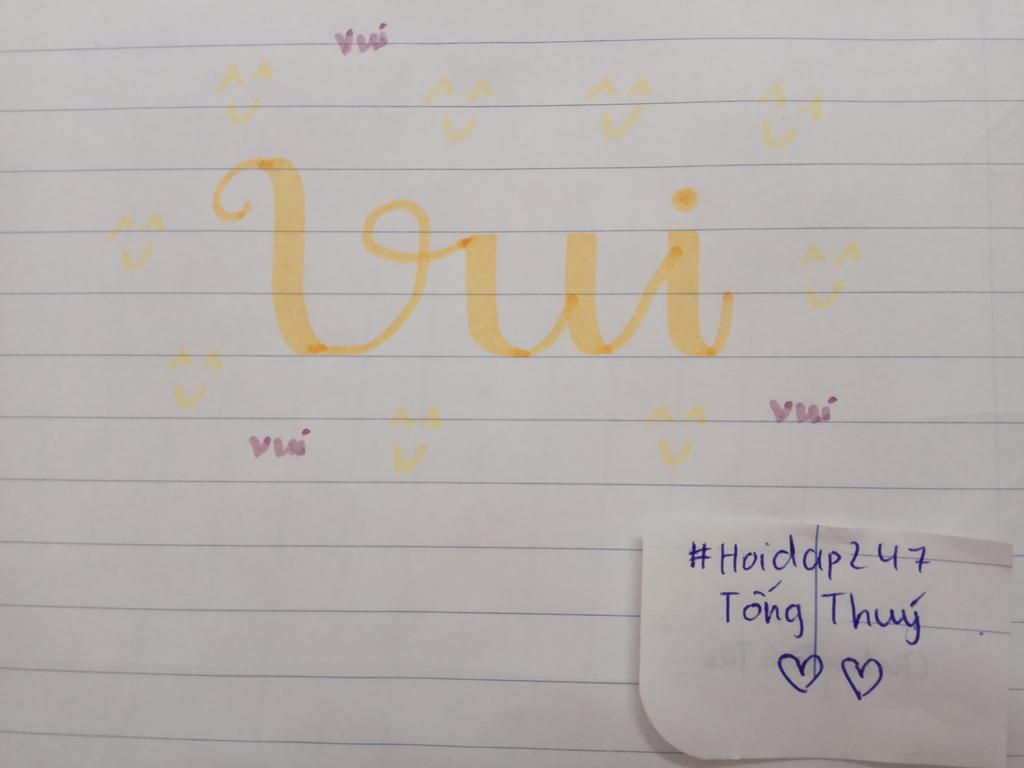 vui
Vui
vui
vui
#Hoidap247
Tống Thuý